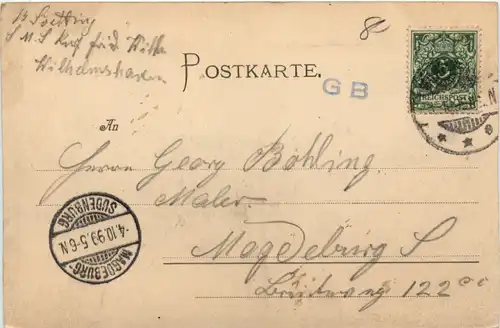 S M S Kurf Fried Wilh
Wilhelmshaven
8
POSTKARTE.
GB
5
REICHSPOST
An
Herrn Georg Böhling.
Maler
Magdeburg S
122
MAGDEBURG-
SUDENBURG
-4.10.99.5-6N.